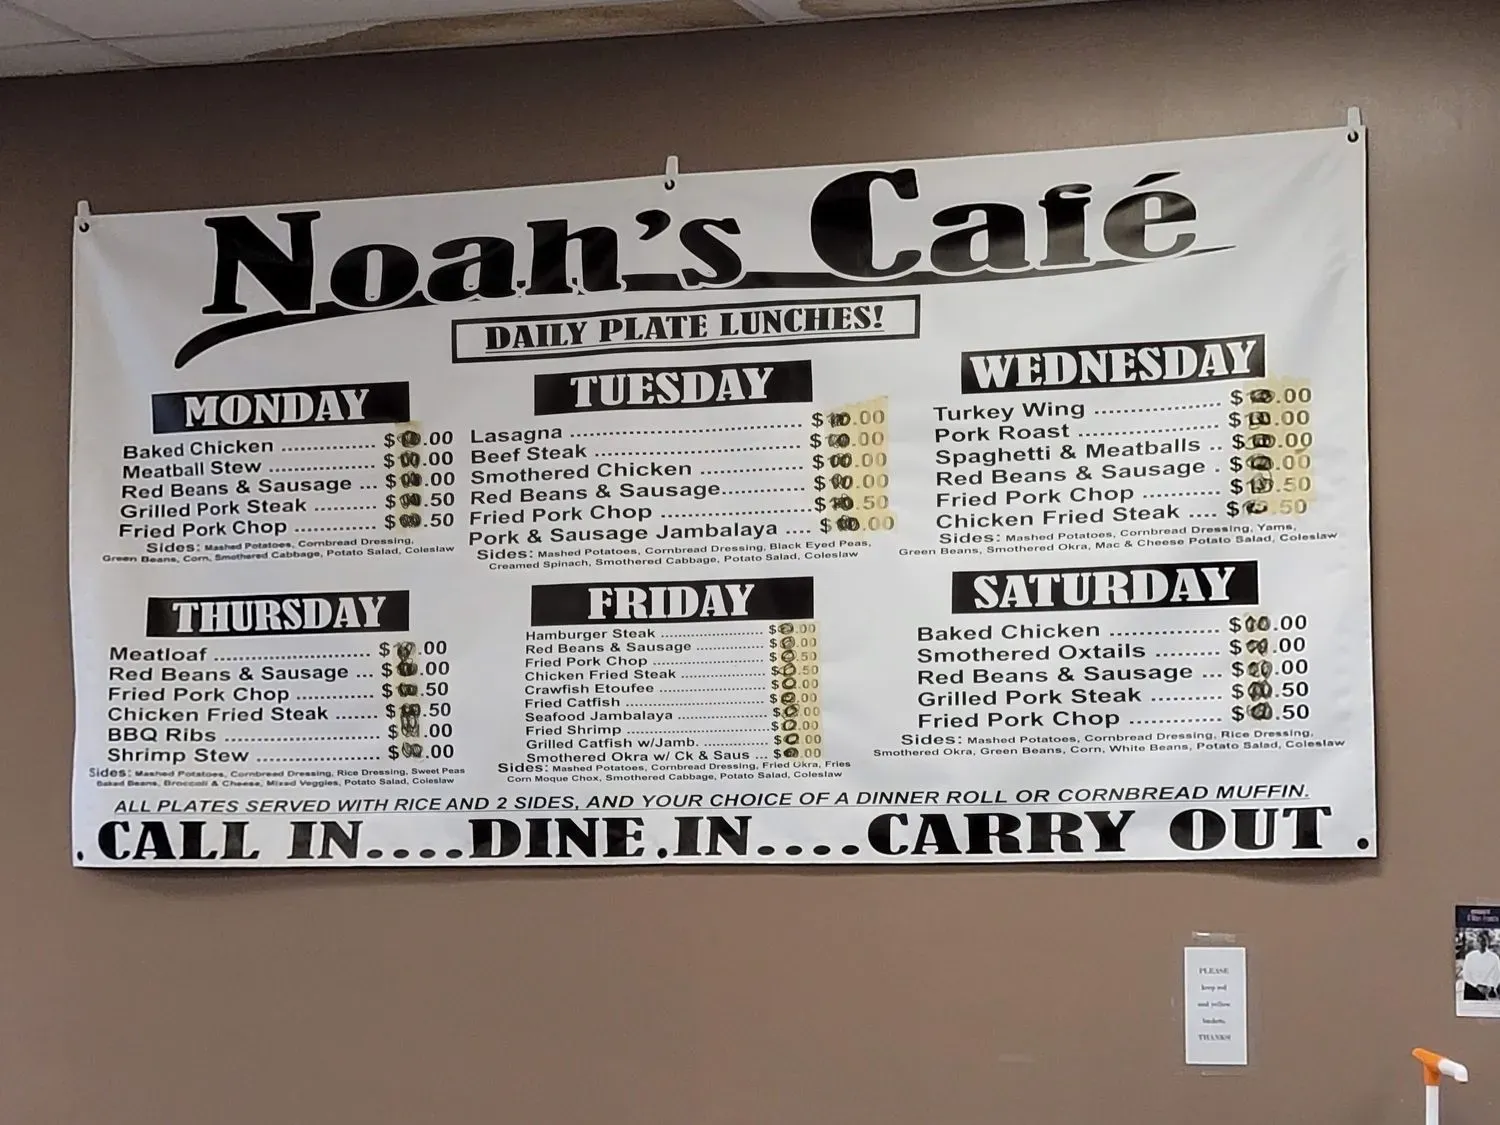 Noah's Café
DAILY PLATE LUNCHES!
MONDAY
Baked Chicken
Meatball Stew
Red Beans & Sausage
Grilled Pork Steak
Fried Pork Chop
Sides: Mashed Potatoes, Cornbread Dressing,
Green Beans, Corn, Smothered Cabbage, Potato Salad, Coleslaw
TUESDAY
Lasagna
Beef Steak
Smothered Chicken
Red Beans & Sausage
Fried Pork Chop
Pork & Sausage Jambalaya
Sides: Mashed Potatoes, Cornbread Dressing, Black Eyed Peas,
Creamed Spinach, Smothered Cabbage, Potato Salad, Coleslaw
WEDNESDAY
Turkey Wing
Pork Roast
Spaghetti & Meatballs
Red Beans & Sausage
Fried Pork Chop
Chicken Fried Steak
Sides: Mashed Potatoes, Cornbread Dressing, Yams,
Green Beans, Smothered Okra, Mac & Cheese Potato Salad, Coleslaw
THURSDAY
Meatloaf
Red Beans & Sausage
Fried Pork Chop
Chicken Fried Steak
BBQ Ribs
Shrimp Stew
Sides: Mashed Potatoes, Cornbread Dressing, Rice Dressing, Sweet Peas
Baked Beans, Broccoli & Cheese, Mixed Veggies, Potato Salad, Coleslaw
FRIDAY
Hamburger Steak
Red Beans & Sausage
Fried Pork Chop
Chicken Fried Steak
Crawfish Etoufee
Fried Catfish
Seafood Jambalaya
Fried Shrimp
Grilled Catfish w/Jamb.
Smothered Okra w/ Ck & Saus
Sides: Mashed Potatoes, Cornbread Dressing, Fried Okra, Fries
Corn Moque Chox, Smothered Cabbage, Potato Salad, Coleslaw
SATURDAY
Baked Chicken
Smothered Oxtails
Red Beans & Sausage
Grilled Pork Steak
Fried Pork Chop
Sides: Mashed Potatoes, Cornbread Dressing, Rice Dressing,
Smothered Okra, Green Beans, Corn, White Beans, Potato Salad, Coleslaw
ALL PLATES SERVED WITH RICE AND 2 SIDES, AND YOUR CHOICE OF A DINNER ROLL OR CORNBREAD MUFFIN.
CALL IN....DINE.IN....CARRY OUT
PLEASE
keep red
and yellow
baskets.
THANKS!